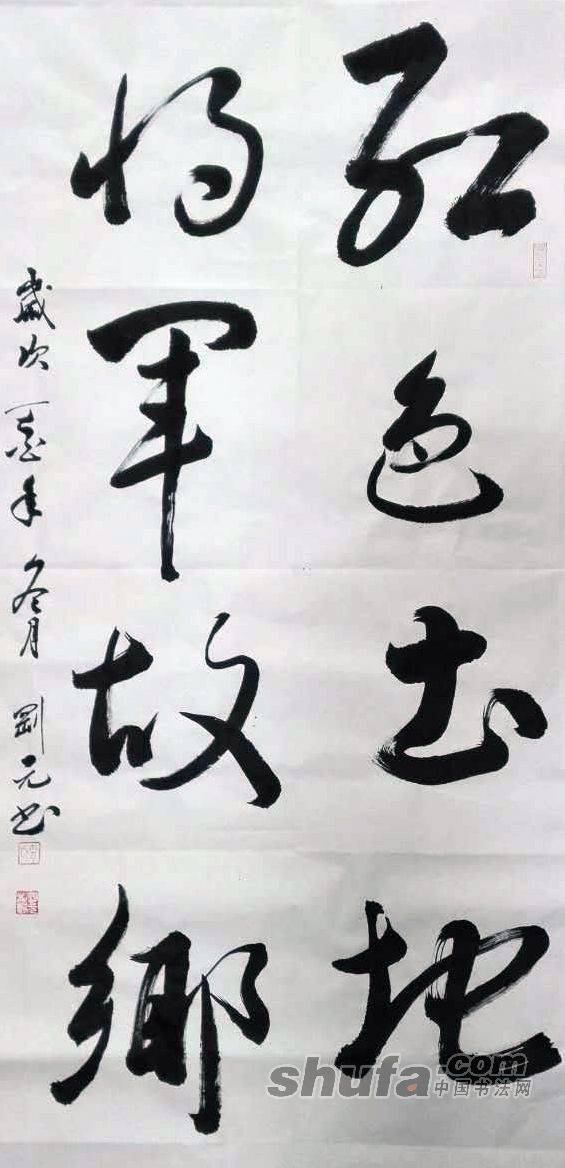 红色土地
将军故鄉
歲次年冬月 剛元书
shufa.com
中国书法网